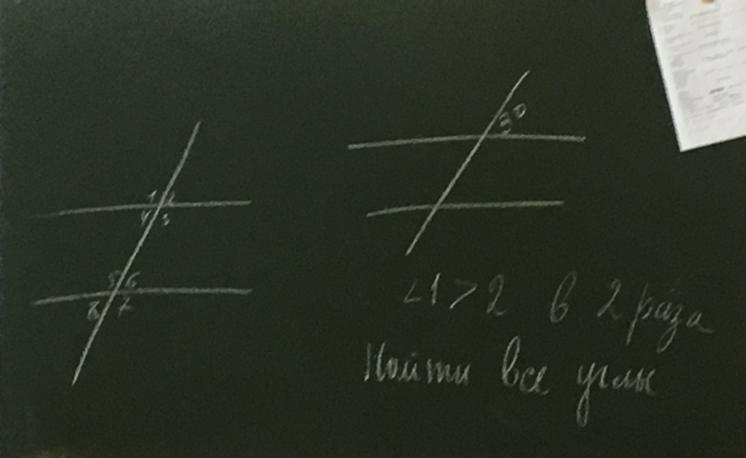 1 2
4 3
5 6
8 7
<1>2 в 2 раза
Найти все углы